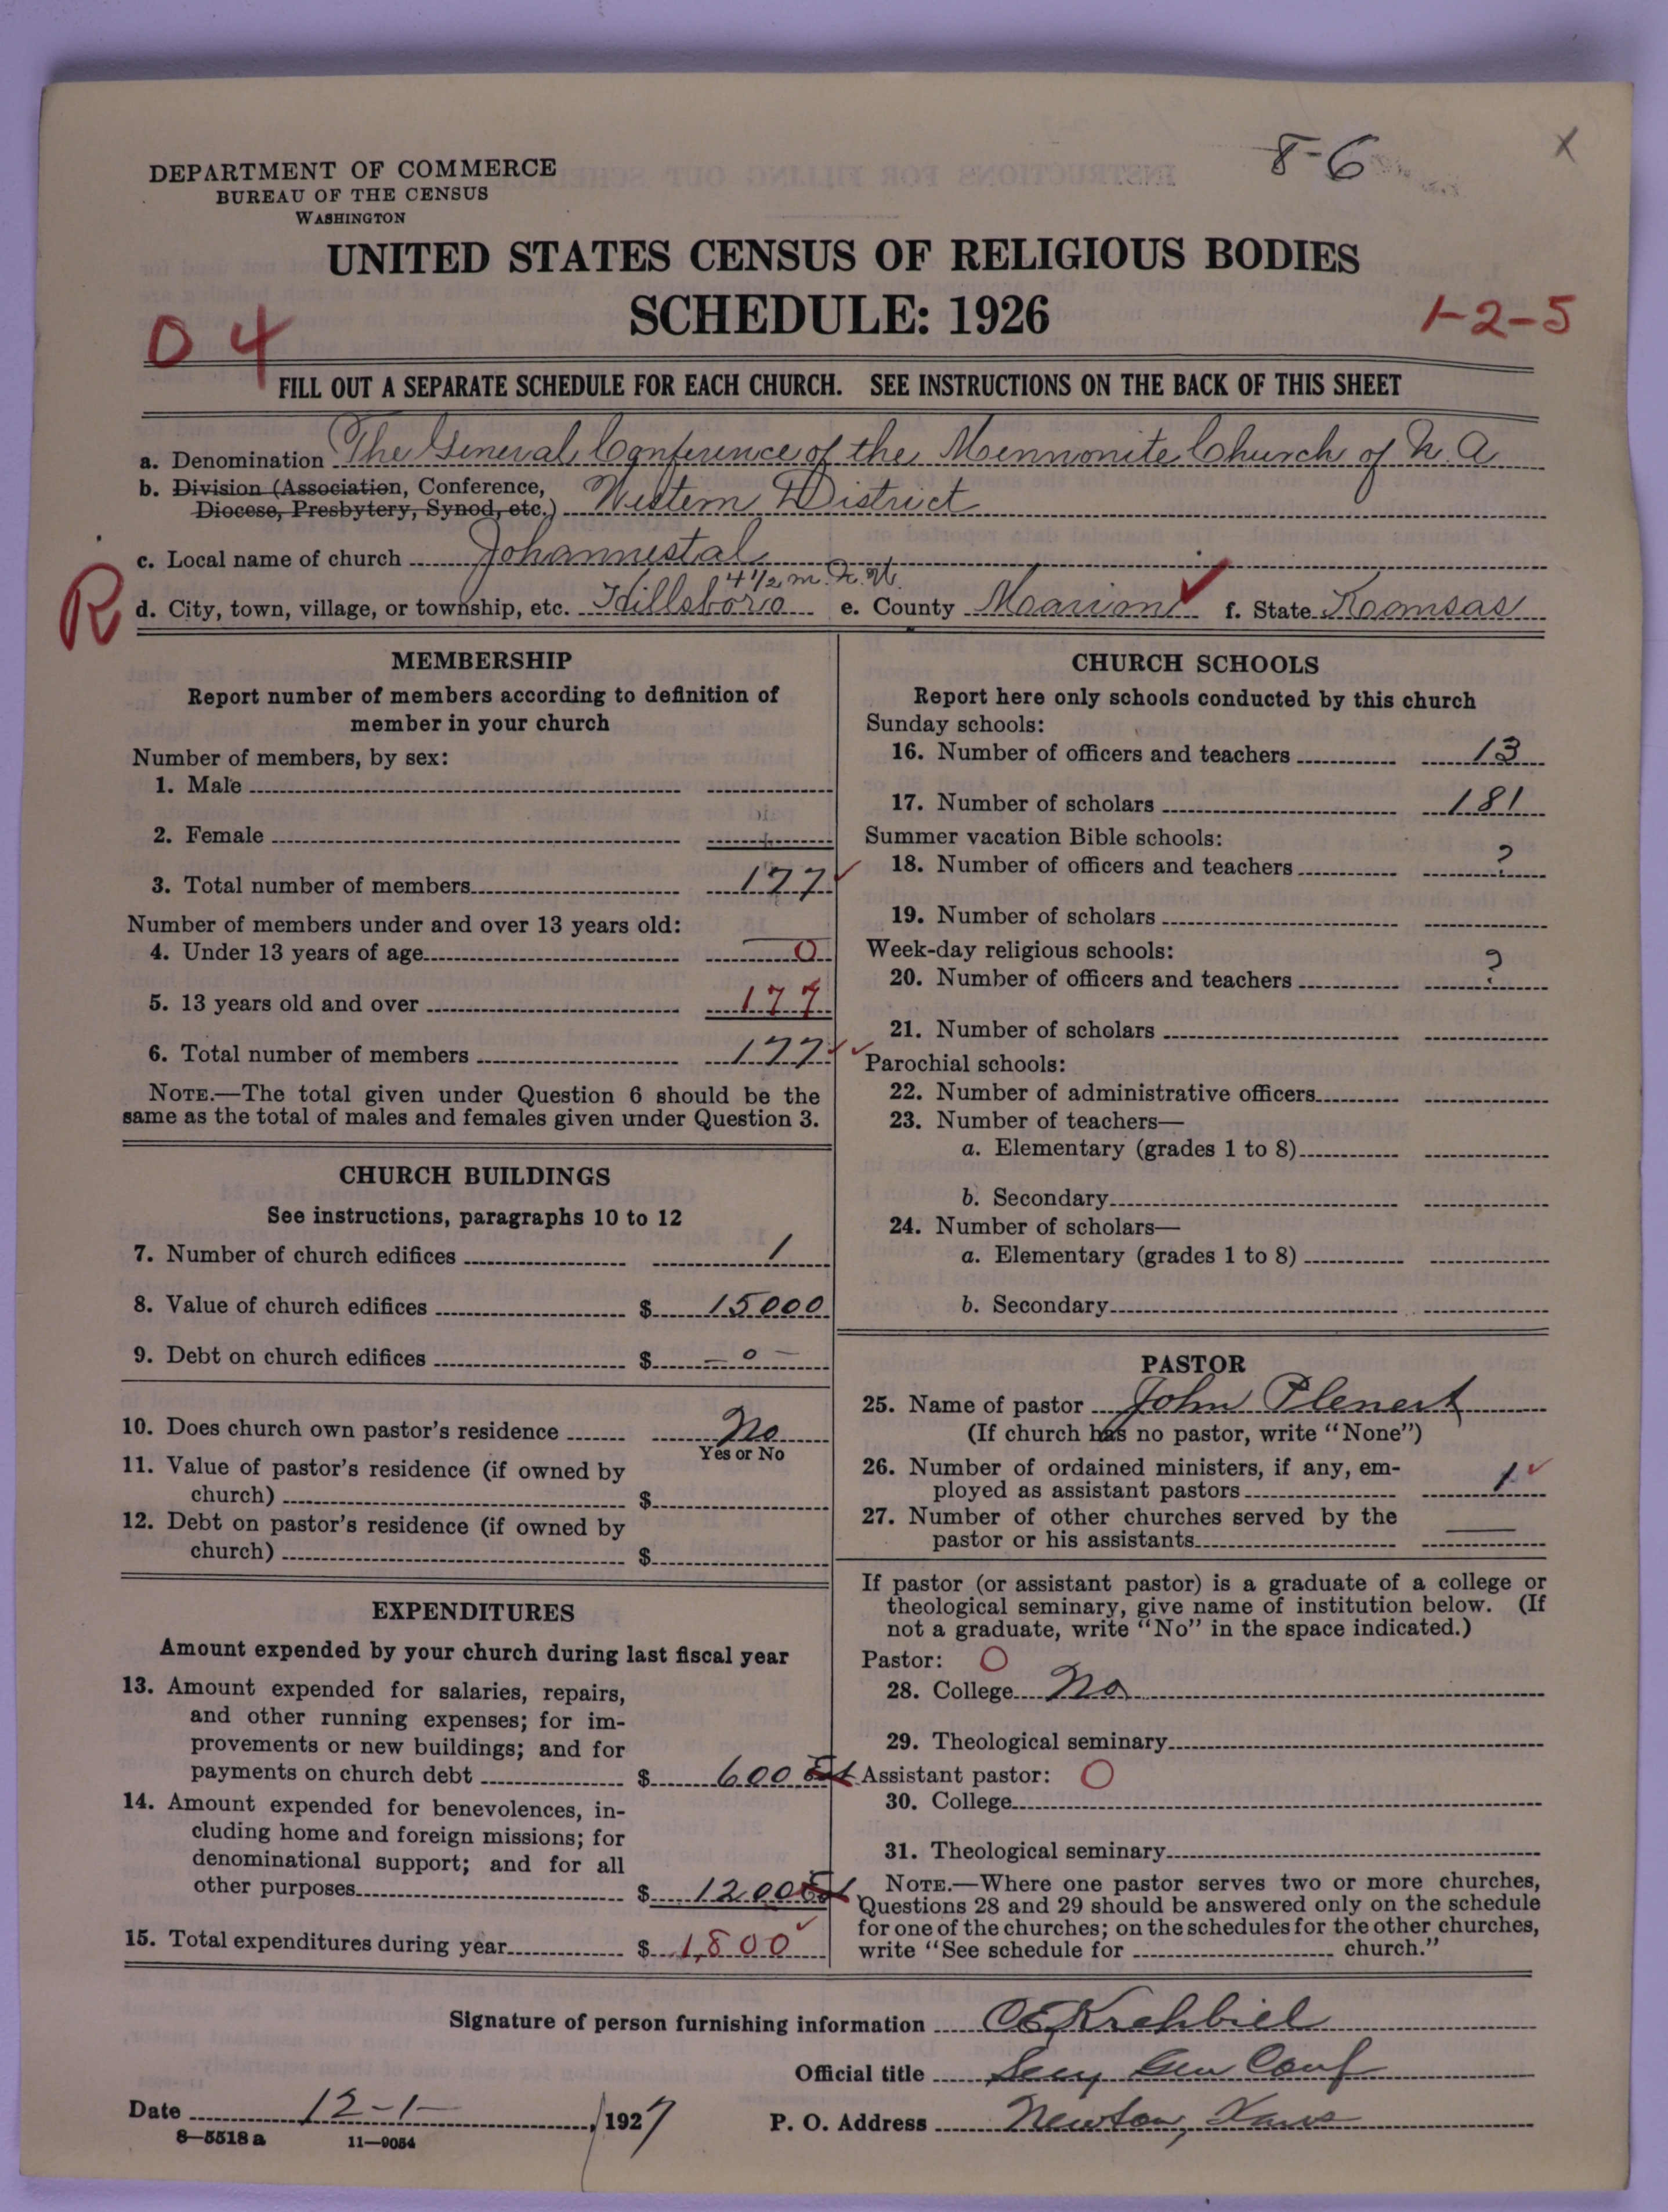 8-6
x
DEPARTMENT OF COMMERCE
BUREAU OF THE CENSUS
WASHINGTON
UNITED STATES CENSUS OF RELIGIOUS BODIES
SCHEDULE: 1926
0 4
1-2-5
FILL OUT A SEPARATE SCHEDULE FOR EACH CHURCH. SEE INSTRUCTIONS ON THE BACK OF THIS SHEET
a. Denomination The General Conference of the Mennonite Church of N. A.
b. Division (Association, Conference,
Diocese, Presbytery, Synod, etc.) Western District
c. Local name of church Johannestal
4 1/2 m. N. W.
R
d. City, town, village, or township, etc. Hillsboro e. County Marion ✓ f. State Kansas
MEMBERSHIP
Report number of members according to definition of
member in your church
Number of members, by sex:
1. Male
2. Female
3. Total number of members 177 ✓
Number of members under and over 13 years old:
4. Under 13 years of age 0
5. 13 years old and over 177
6. Total number of members 177 ✓ ✓
NOTE.—The total given under Question 6 should be the
same as the total of males and females given under Question 3.
CHURCH BUILDINGS
See instructions, paragraphs 10 to 12
7. Number of church edifices 1
8. Value of church edifices $ 15000
9. Debt on church edifices $ — 0 —
10. Does church own pastor's residence No
Yes or No
11. Value of pastor's residence (if owned by
church) $
12. Debt on pastor's residence (if owned by
church) $
EXPENDITURES
Amount expended by your church during last fiscal year
13. Amount expended for salaries, repairs,
and other running expenses; for im-
provements or new buildings; and for
payments on church debt $ 600 Est
14. Amount expended for benevolences, in-
cluding home and foreign missions; for
denominational support; and for all
other purposes $ 1200 Est
15. Total expenditures during year $ 1,800 ✓
CHURCH SCHOOLS
Report here only schools conducted by this church
Sunday schools:
16. Number of officers and teachers 13
17. Number of scholars 181
Summer vacation Bible schools:
18. Number of officers and teachers ?
19. Number of scholars
Week-day religious schools:
20. Number of officers and teachers ?
21. Number of scholars
Parochial schools:
22. Number of administrative officers
23. Number of teachers—
a. Elementary (grades 1 to 8)
b. Secondary
24. Number of scholars—
a. Elementary (grades 1 to 8)
b. Secondary
PASTOR
25. Name of pastor John Plenert
(If church has no pastor, write "None")
26. Number of ordained ministers, if any, em-
ployed as assistant pastors 1 ✓
27. Number of other churches served by the
pastor or his assistants —
If pastor (or assistant pastor) is a graduate of a college or
theological seminary, give name of institution below. (If
not a graduate, write "No" in the space indicated.)
Pastor: O
28. College No
29. Theological seminary
Assistant pastor: O
30. College
31. Theological seminary
NOTE.—Where one pastor serves two or more churches,
Questions 28 and 29 should be answered only on the schedule
for one of the churches; on the schedules for the other churches,
write "See schedule for church."
Signature of person furnishing information C E Krehbiel
Official title Secy Gen Conf
Date 12-1- , 1927 P. O. Address Newton, Kans
8—5518 a 11—9054